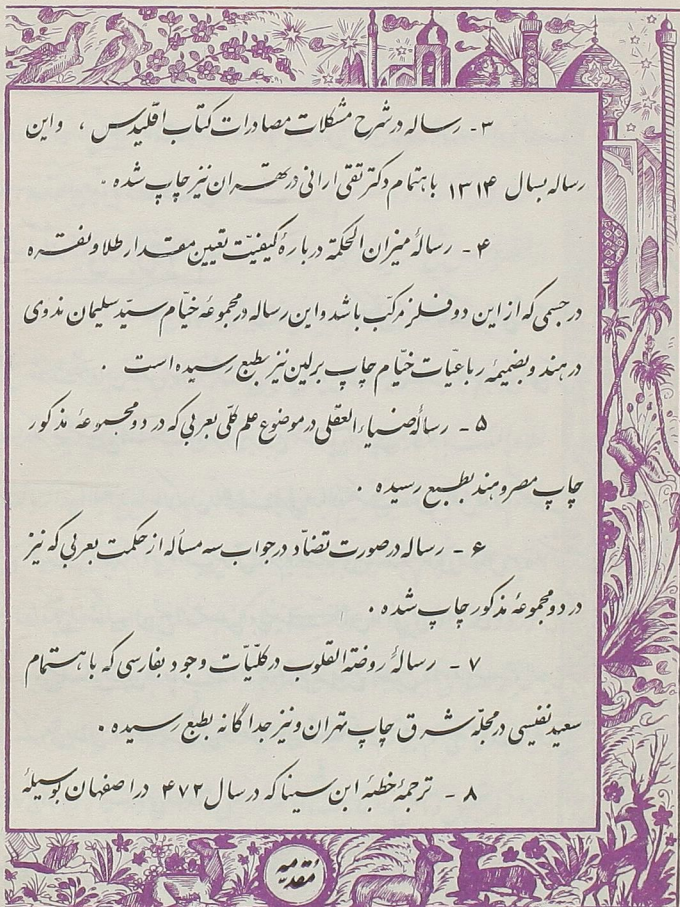 ۳ - رساله در شرح مشکلات مصادرات کتاب اقلیدس ، واین
رساله بسال ۱۳۱۴ باهتمام دکتر تقی ارانی در تهران نیز چاپ شده .
۴ - رسالهٔ میزان الحکمة دربارهٔ کیفیّت تعیین مقدار طلا و نقره
در جسمی که از این دو فلز مرکّب باشد و این رساله در مجموعهٔ خیّام سیّد سلیمان ندوی
در هند و بضمیمهٔ رباعیّات خیّام چاپ برلین نیز بطبع رسیده است .
۵ - رسالهٔ ضیاء العقلی در موضوع علم کلّی بعربی که در دو مجموعهٔ مذکور
چاپ مصر و هند بطبع رسیده .
۶ - رساله در صورت تضادّ در جواب سه مسأله از حکمت بعربی که نیز
در دو مجموعهٔ مذکور چاپ شده .
۷ - رسالهٔ روضة القلوب در کلّیّات وجود بفارسی که باهتمام
سعید نفیسی در مجلّه شرق چاپ تهران و نیز جداگانه بطبع رسیده .
۸ - ترجمهٔ خطبهٔ ابن سینا که در سال ۴۷۲ در اصفهان بوسیلهٔ
مقدمه